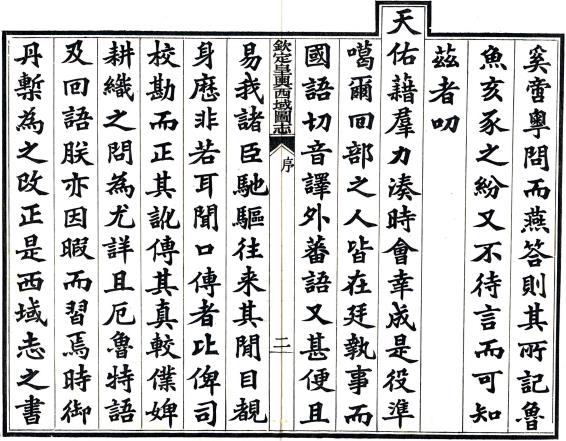 奚啻粵問而燕答則其所記魯
魚亥豕之紛又不待言而可知
茲者叨
天佑藉羣力湊時會幸成是役準
噶爾回部之人皆在廷執事而
國語切音譯外蕃語又甚便且
欽定皇輿西域圖志
序
二
易我諸臣馳驅往来其間目覩
身歷非若耳聞口傳者比俾司
校勘而正其訛傳其真較僕婢
耕織之問為尤詳且厄魯特語
及回語朕亦因暇而習焉時御
丹槧為之改正是西域志之書